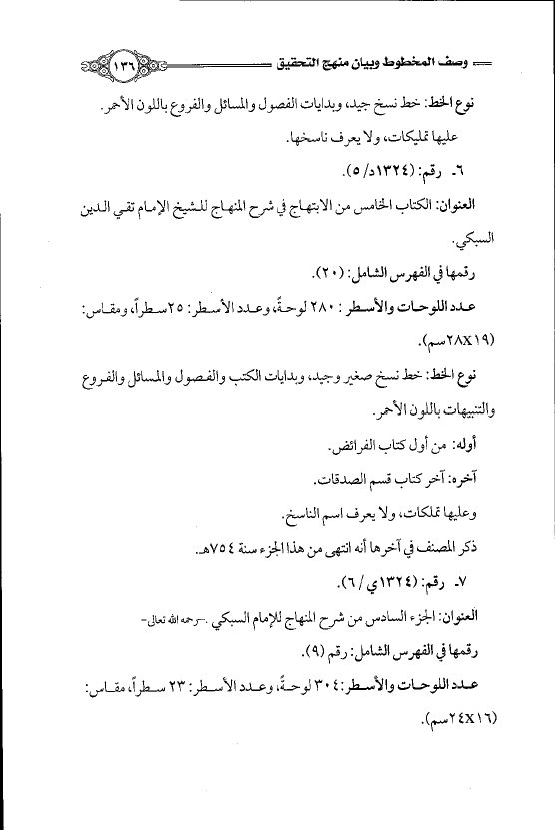 وصف المخطوط وبيان منهج التحقيق
١٣٦
نوع الخط: خط نسخ جيد، وبدايات الفصول والمسائل والفروع باللون الأحمر.
عليها تمليكات، ولا يعرف ناسخها.
٦ـ رقم: (١٣٢٤د/ ٥).
العنوان: الكتاب الخامس من الابتهاج في شرح المنهاج للشيخ الإمام تقي الدين
السبكي.
رقمها في الفهرس الشامل: (٢٠).
عدد اللوحات والأسطر : ٢٨٠ لوحةً، وعدد الأسطر: ٢٥سطراً، ومقاس:
(٢٨X١٩سم).
نوع الخط: خط نسخ صغير وجيد، وبدايات الكتب والفصول والمسائل والفروع
والتنبيهات باللون الأحمر.
أوله: من أول كتاب الفرائض.
آخره: آخر كتاب قسم الصدقات.
وعليها تملكات، ولا يعرف اسم الناسخ.
ذكر المصنف في آخرها أنه انتهى من هذا الجزء سنة ٧٥٤هـ.
٧ـ رقم: (١٣٢٤ي/ ٦).
العنوان: الجزء السادس من شرح المنهاج للإمام السبكي .-رحمه الله تعالى-
رقمها في الفهرس الشامل: رقم (٩).
عدد اللوحات والأسطر: ٣٠٤ لوحةً، وعدد الأسطر: ٢٣ سطراً، مقاس:
(٢٤X١٦سم).